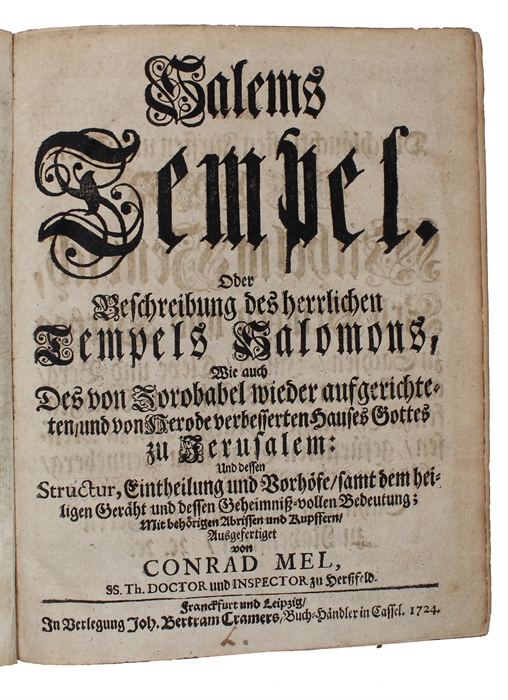 Salems
Tempel.
Oder
Beschreibung des herrlichen
Tempels Salomons,
Wie auch
Des von Zorobabel wieder aufgerichte-
ten/und von Herode verbesserten Hauses Gottes
zu Jerusalem:
Und dessen
Structur, Eintheilung und Vorhöfe/samt dem hei-
ligen Geräht und dessen Geheimniß-vollen Bedeutung;
Mit behörigen Abrissen und Kupffern/
Ausgefertiget
von
CONRAD MEL,
SS. Th. DOCTOR und INSPECTOR zu Herßfeld.
Franckfurt und Leipzig/
In Verlegung Joh. Bertram Cramers,/Buch-Händler in Cassel. 1724.